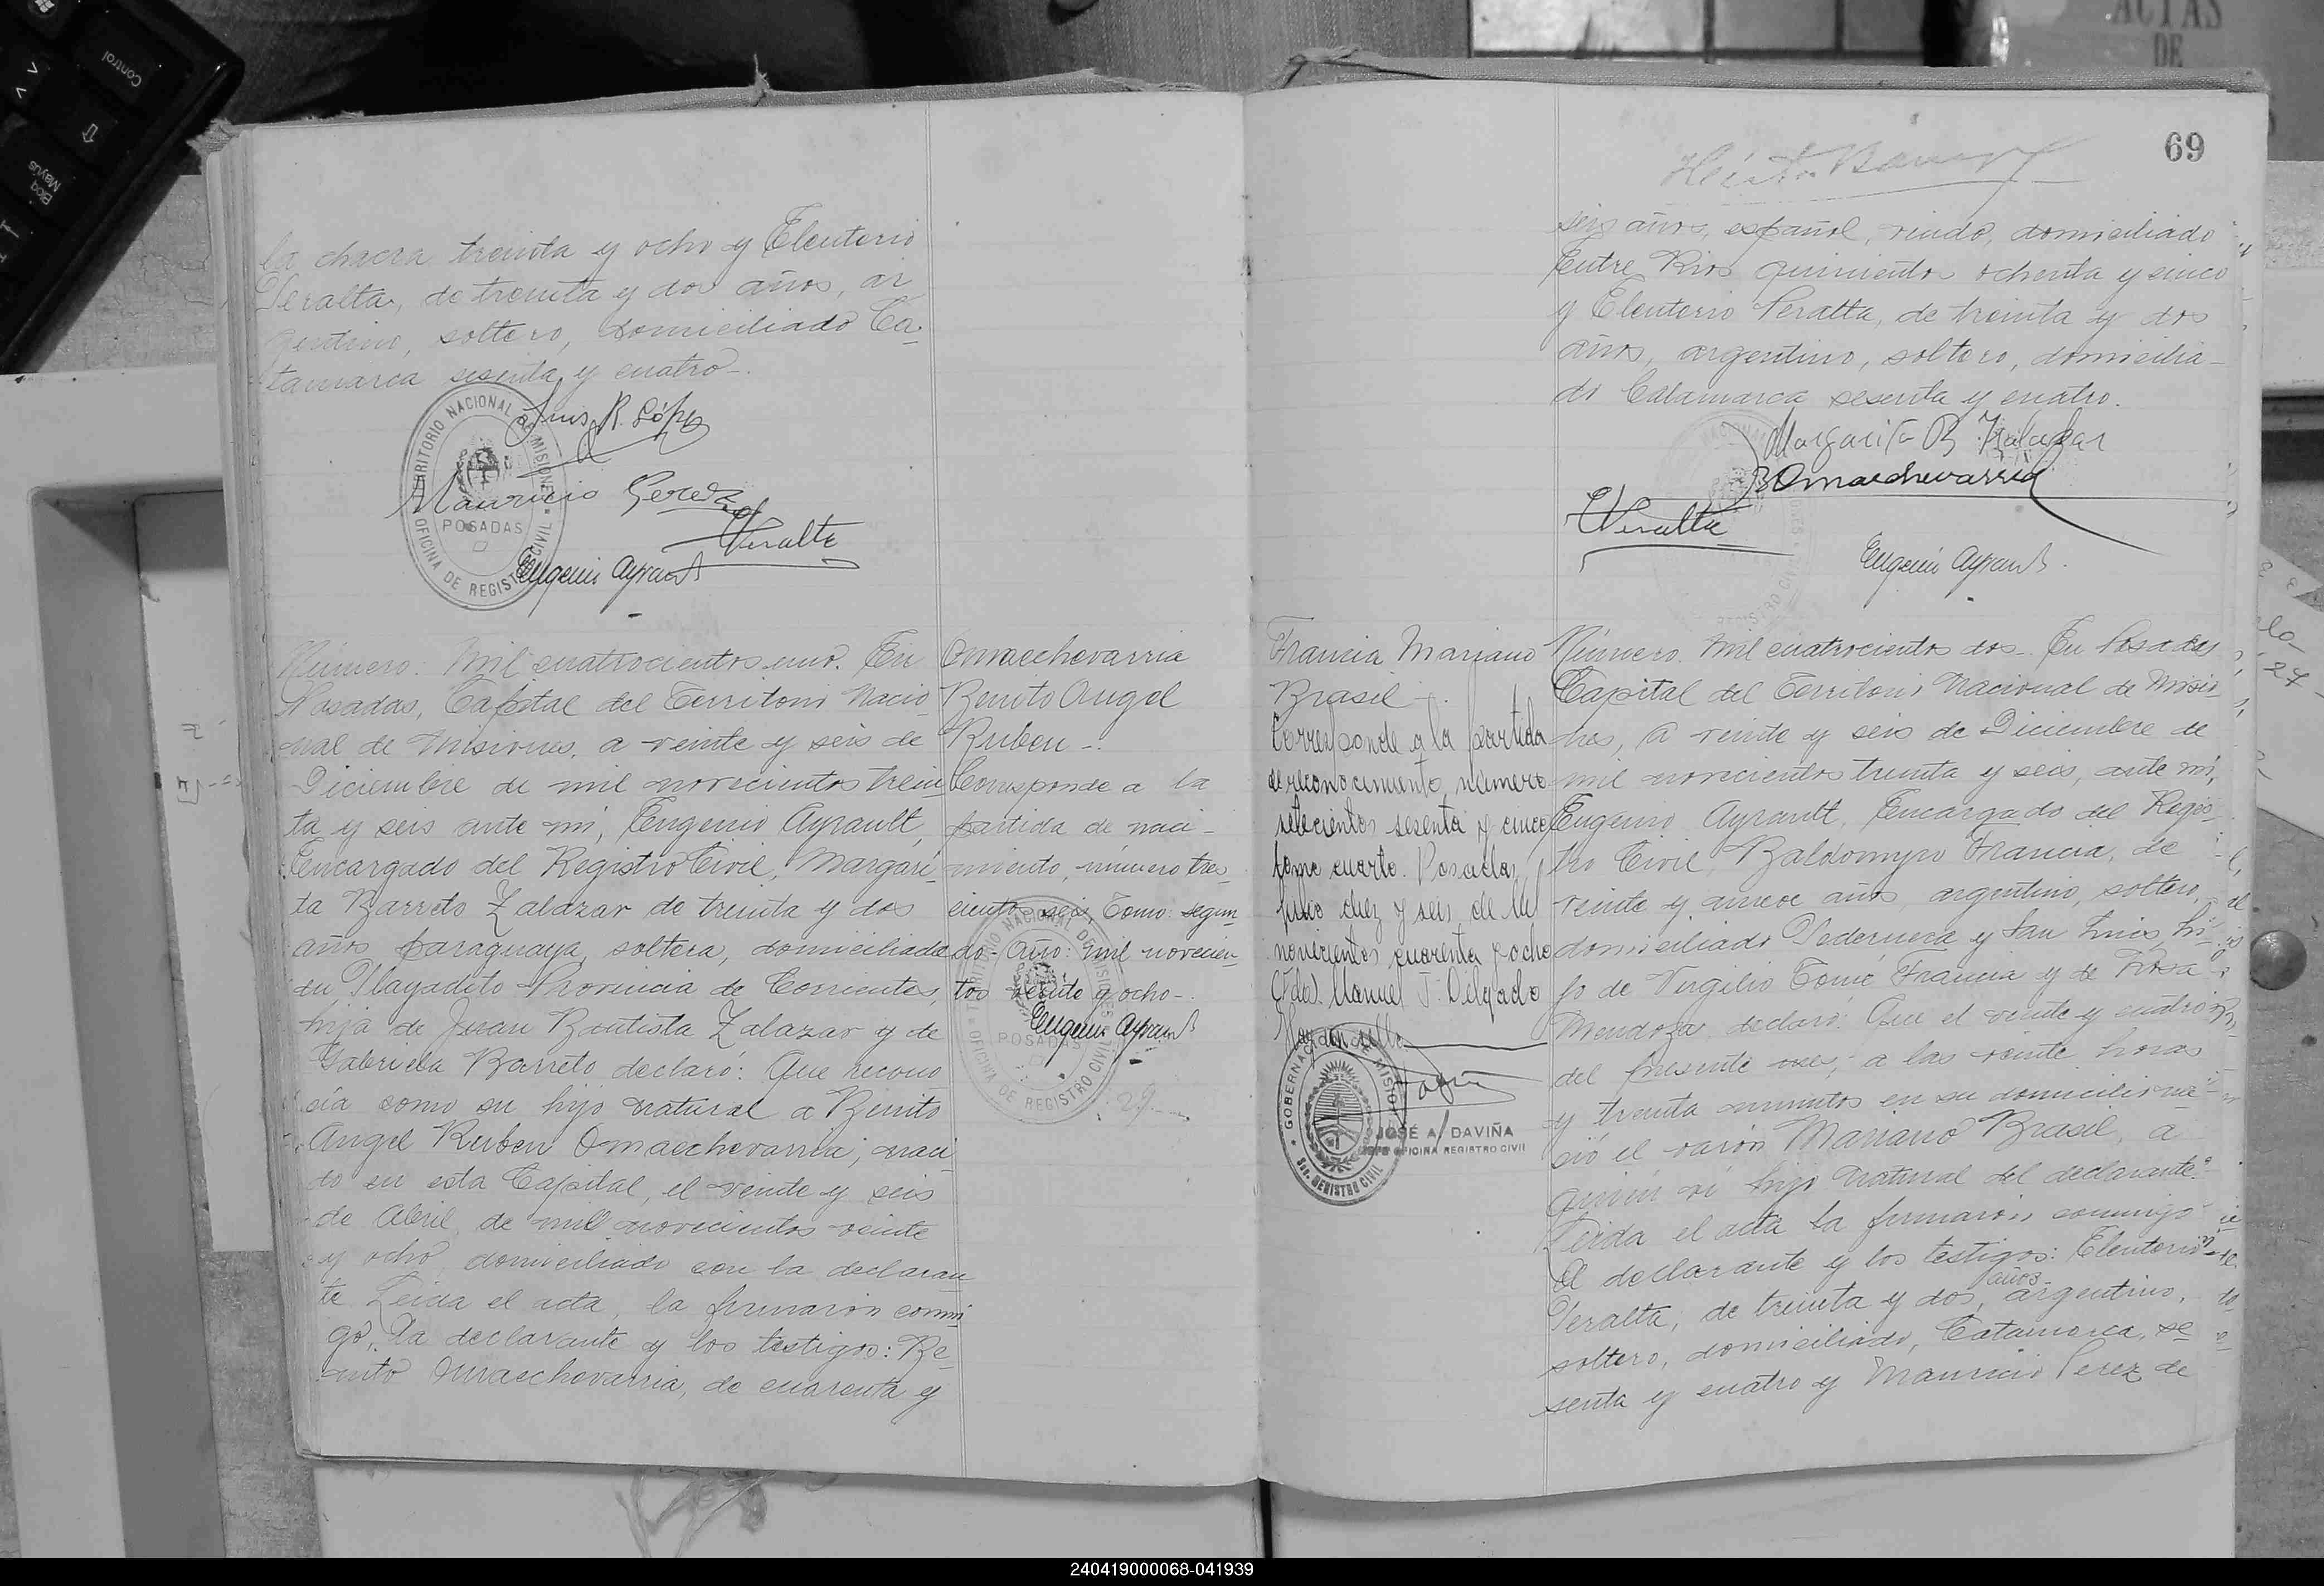 Control
Bloq
Mayús
ACTAS
DE
la chacra treinta y ocho y Eleuterio
Peralta, de treinta y dos años, ar
gentino, soltero, domiciliado Ca-
tamarca sesenta y cuatro-.
Luis R. López
TERRITORIO NACIONAL DE MISIONES
POSADAS
OFICINA DE REGISTRO CIVIL
Mauricio Perez
EPeralta
Eugenio Ayrault
Número: Mil cuatrocientos uno. En
Posadas, Capital del Territorio Nacio-
nal de Misiones, a veinte y seis de
Diciembre de mil novecientos trein
ta y seis ante mí, Eugenio Ayrault,
Encargado del Registro Civil, Margari-
ta Barreto Zalazar de treinta y dos
años, paraguaya, soltera, domiciliada
en Playadito Provincia de Corrientes,
hija de Juan Bautista Zalazar y de
Gabriela Barreto declaró: Que recono
cía como su hijo natural a Benito
Angel Ruben Omaechevarria; naci
do en esta Capital, el veinte y seis
de Abril de mil novecientos veinte
y ocho, domiciliado con la declaran
te. Leida el acta, la firmaron conmi
go, La declarante y los testigos: Be-
nito Omaechevarria, de cuarenta y
Omaechevarria
Benito Angel
Ruben-.
Corresponde a la
partida de naci-
miento, número tres-
cientos seis, Tomo: segun
do- Año: mil novecien-
tos veinte y ocho-.
Eugenio Ayrault
TERRITORIO NACIONAL DE MISIONES
POSADAS
OFICINA DE REGISTRO CIVIL
29
69
seis años, español, viudo, domiciliado
Entre Rios quinientos ochenta y cinco
y Eleuterio Peralta, de treinta y dos
años, argentino, soltero, domicilia-
do Catamarca sesenta y cuatro.
Margarita B Zalazar
BOmaechevarria
EPeralta
Eugenio Ayrault
Francia Mariano
Brasil-.
Corresponde a la partida
de reconocimiento número
setecientos sesenta y cinco
tomo cuarto. Posadas,
julio diez y seis de mil
novecientos cuarenta y ocho
(Fdo). Manuel J. Delgado
Hay un sello.
GOBERNACION
MISIONES
Sec. REGISTRO CIVIL
JOSÉ A. DAVIÑA
JEFE OFICINA REGISTRO CIVIL
Número. Mil cuatrocientos dos- En Posadas
Capital del Territorio Nacional de Misio-
nes, a veinte y seis de Diciembre de
mil novecientos treinta y seis, ante mí,
Eugenio Ayrault, Encargado del Regis-
tro Civil, Baldomyro Francia, de
veinte y nueve años, argentino, soltero,
domiciliado Pedernera y San Luis, hi-
jo de Virgilio Tomé Francia y de Rosa
Mendoza declaró: Que el veinte y cuatro
del presente mes, a las veinte horas
y treinta minutos en su domicilio na-
ció el varón Mariano Brasil, a
quien vi hijo natural del declarante.
Leida el acta la firmaron conmigo
El declarante y los testigos: Eleuterio
años
Peralta, de treinta y dos, argentino,
soltero, domiciliado, Catamarca, se-
senta y cuatro y Mauricio Perez de
240419000068-041939